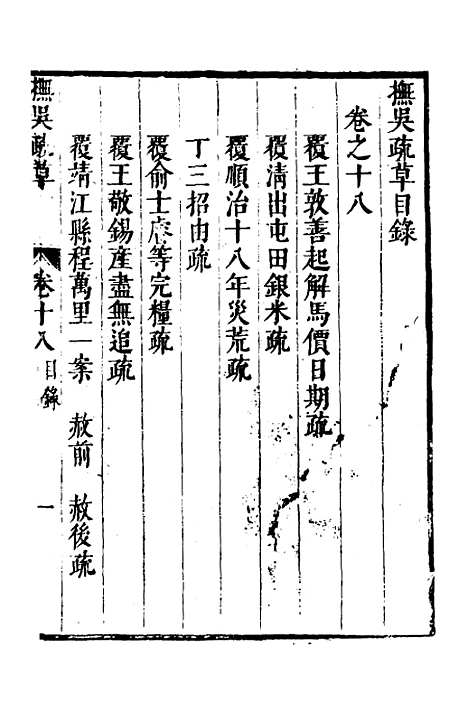 撫吳疏草目錄
卷之十八
覆王敦善起解馬價日期疏
覆清出屯田銀米疏
覆順治十八年災荒疏
丁三招由疏
覆俞士彥等完糧疏
覆王敬錫產盡無追疏
覆靖江縣程萬里一案　赦前　赦後疏
撫吳疏草　卷十八　目錄　一